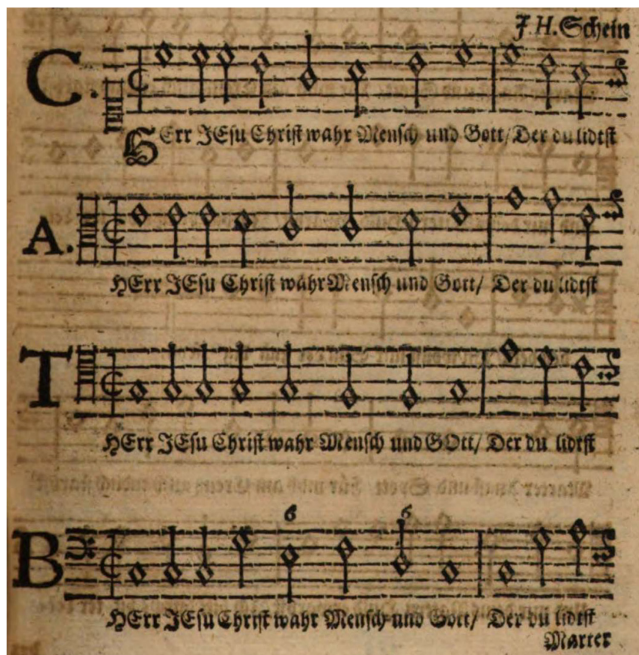 J. H. Schein
C.
HErr JEsu Christ wahr Mensch und Gott/ Der du lidtst
A.
HErr JEsu Christ wahr Mensch und Gott/ Der du lidtst
T
HErr JEsu Christ wahr Mensch und GOtt/ Der du lidtst
6 6
B
HErr JEsu Christ wahr Mensch und Gott/ Der du lidtst
Marter